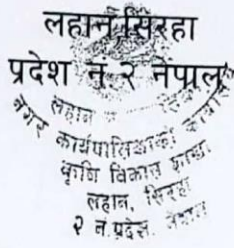 लहान,सिरहा
प्रदेश नं.२ नेपाल
लहान
नगर कार्यपालिकाको
कृषि विकास शाखा
लहान, सिरहा
२ नं.प्रदेश, नेपाल